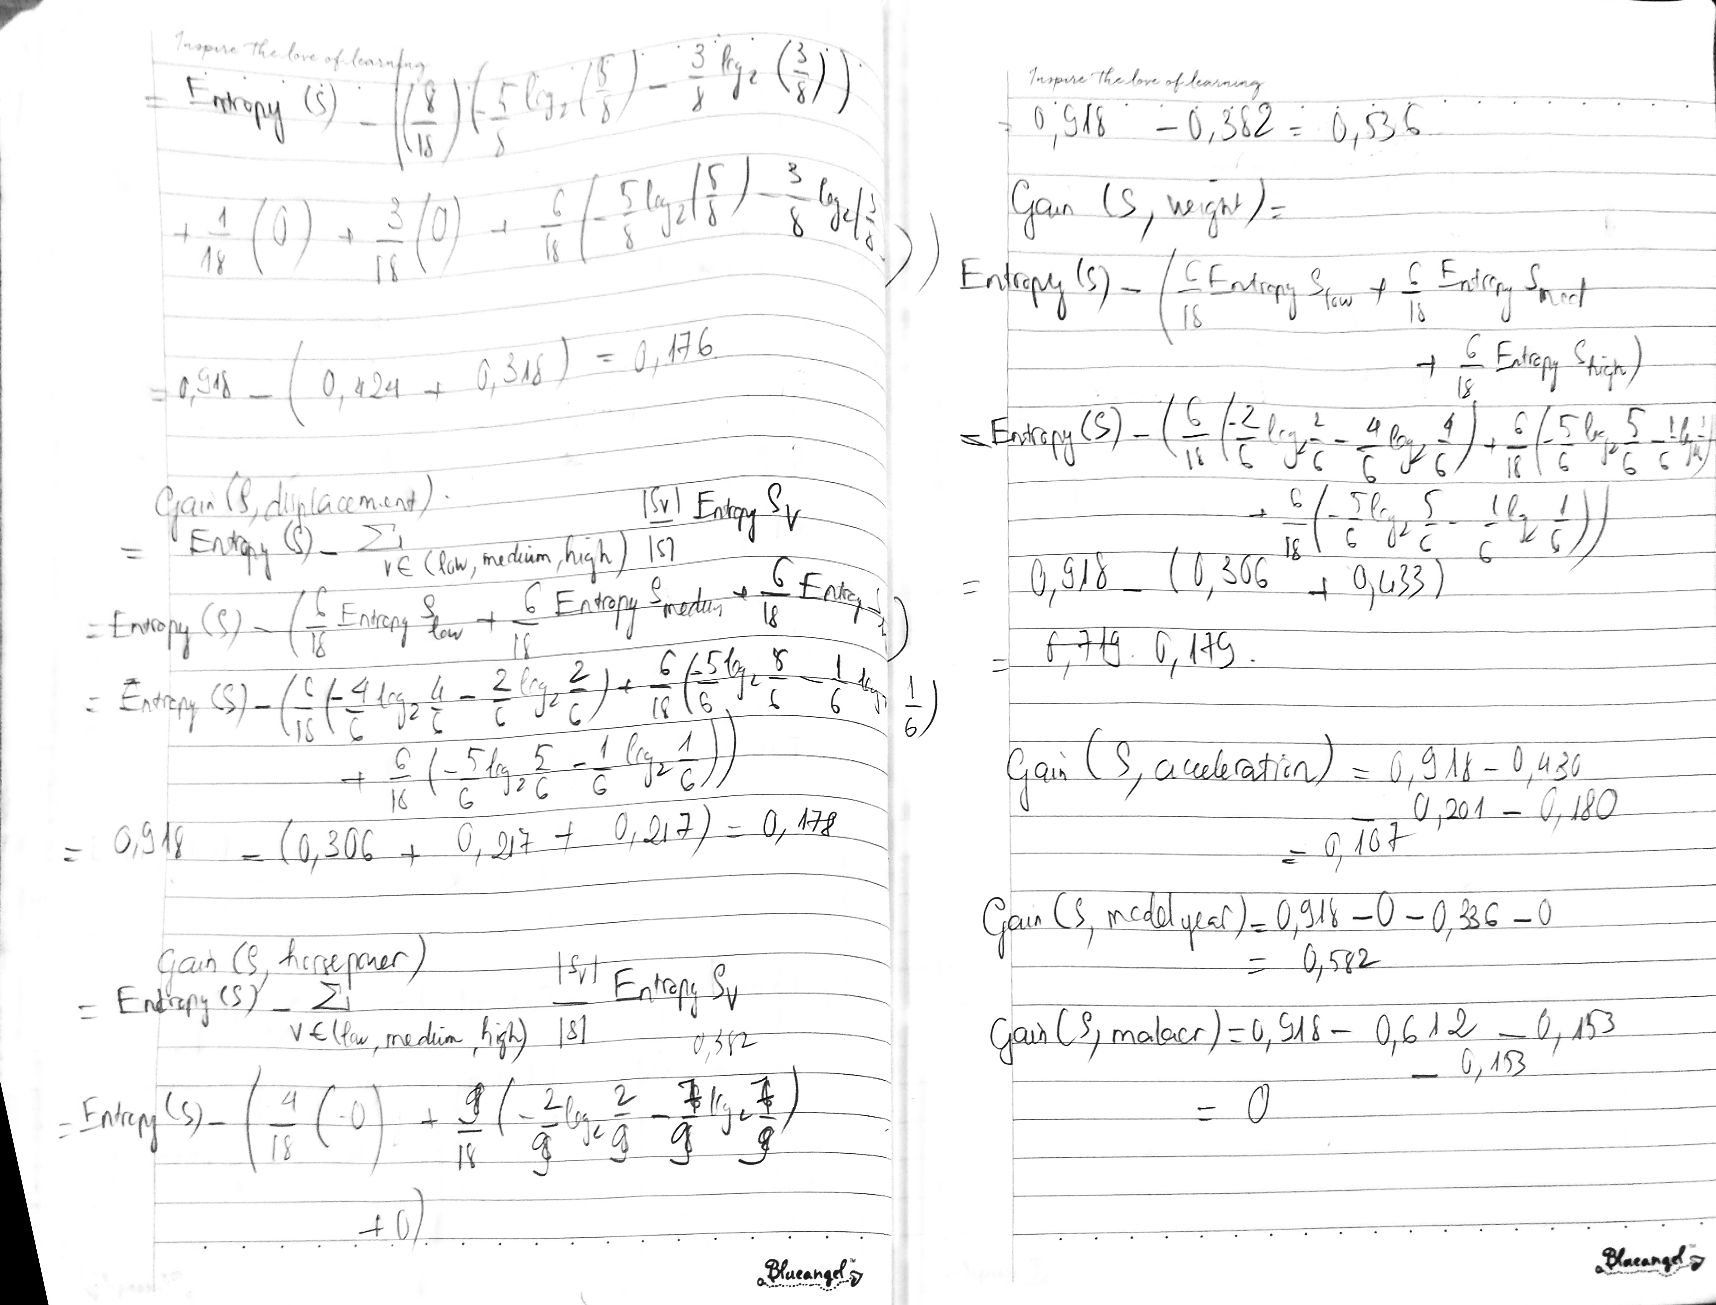 Inspire the love of learning
= Entropy (S) - ((8/18) (-5/8 log₂ (5/8) - 3/8 log₂ (3/8))
+ 1/18 (0) + 3/18 (0) + 6/18 (-5/8 log₂ (5/8) - 3/8 log₂ (3/8)))
= 0,918 - (0,424 + 0,318) = 0,176
Gain (S, displacement).
= Entropy (S) - Σ v∈(low, medium, high) |Sv|/|S| Entropy Sv
= Entropy (S) - (6/18 Entropy Slow + 6/18 Entropy Smedium + 6/18
= Entropy (S) - (6/18 (-4/6 log₂ 4/6 - 2/6 log₂ 2/6) + 6/18 (-5/6 log₂ 5/6 - 1/6 log₂ 1/6)
+ 6/18 (-5/6 log₂ 5/6 - 1/6 log₂ 1/6))
= 0,918 - (0,306 + 0,217 + 0,217) = 0,178
Gain (S, horsepower)
= Entropy (S) - Σ v∈(low, medium, high) |Sv|/|S| Entropy Sv
0,382
= Entropy (S) - (4/18 (-0) + 9/18 (-2/9 log₂ 2/9 - 7/9 log₂ 7/9)
+ 0)
Blueangel
Inspire the love of learning
= 0,918 - 0,382 = 0,536
Gain (S, weight) =
Entropy (S) - (6/18 Entropy Slow + 6/18 Entropy Smed
+ 6/18 Entropy Shigh)
= Entropy (S) - (6/18 (-2/6 log₂ 2/6 - 4/6 log₂ 4/6) + 6/18 (-5/6 log₂ 5/6 - 1/6 log₂ 1/6)
+ 6/18 (-5/6 log₂ 5/6 - 1/6 log₂ 1/6))
= 0,918 - (0,306 + 0,433)
= 0,179.
Gain (S, acceleration) = 0,918 - 0,430
- 0,201 - 0,180
= 0,107
Gain (S, modelyear) = 0,918 - 0 - 0,336 - 0
= 0,582
Gain (S, malacr) = 0,918 - 0,612 - 0,153
- 0,153
= 0
Blueangel